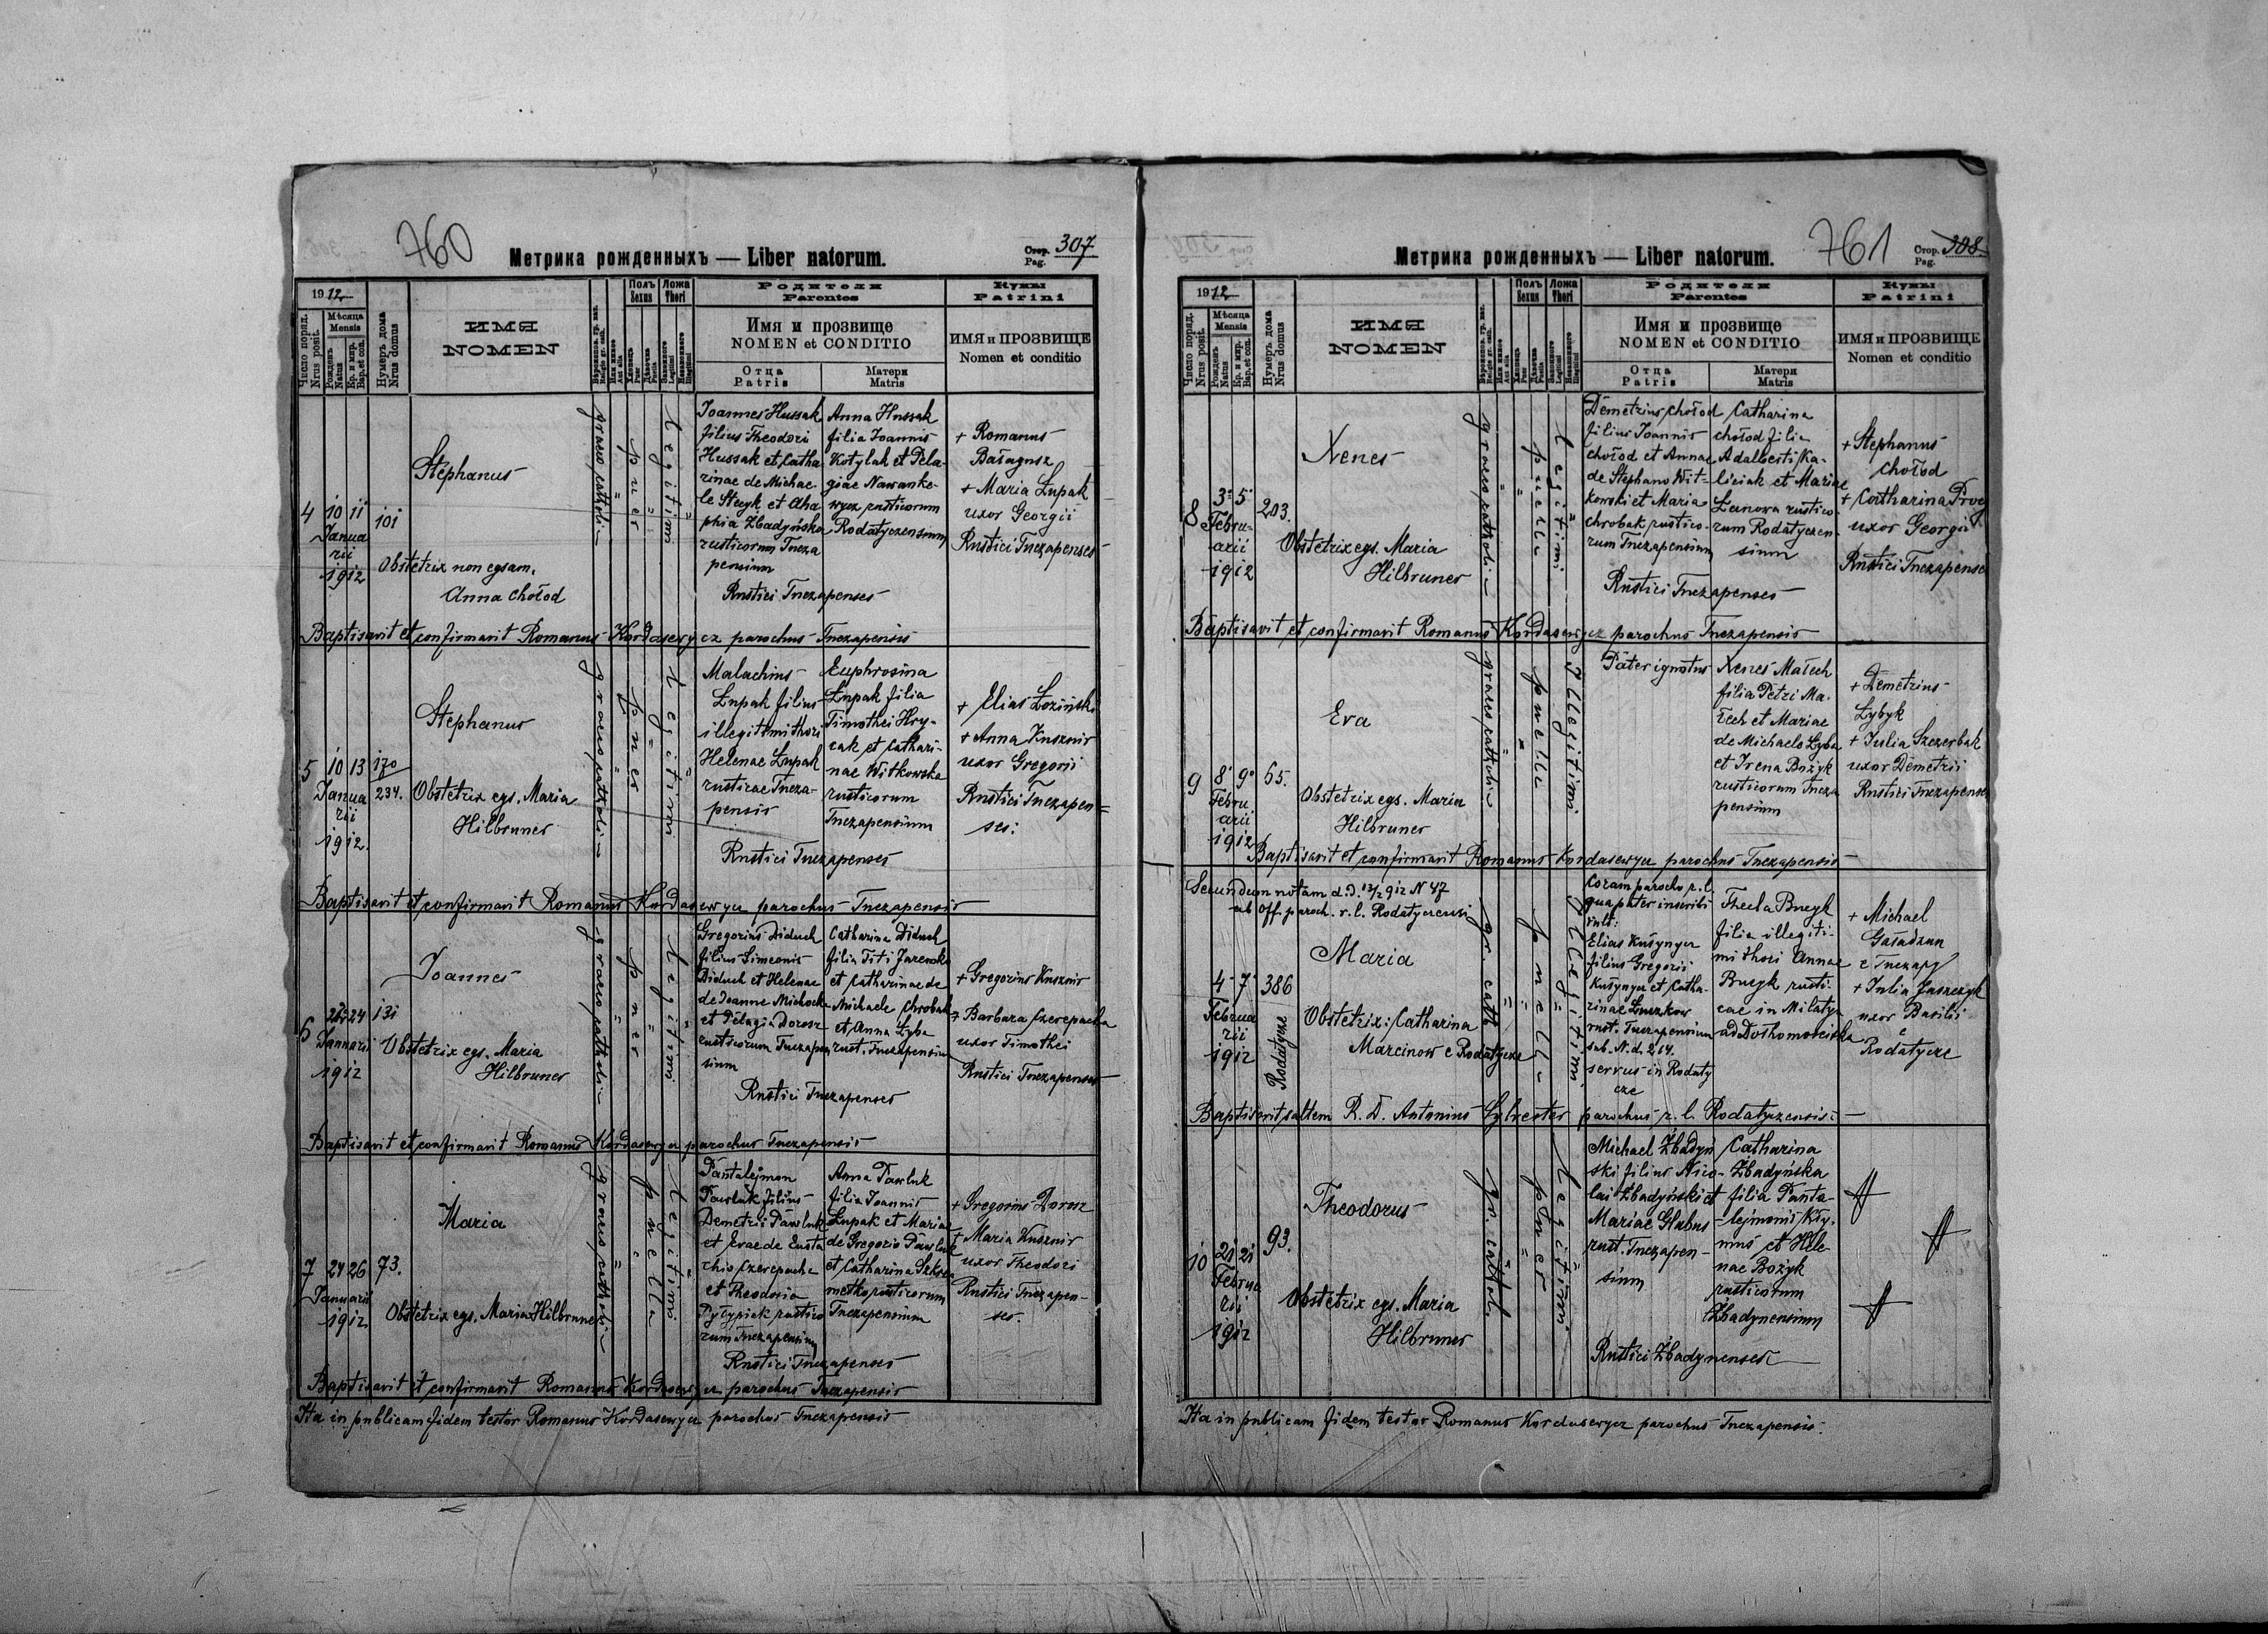 760
Метрика рожденныхъ — Liber natorum.
Стор. 307
Pag.
1912
Число поряд.
Nrus posit.
Мѣсяца
Mensis
Рожденъ
Natus
Кр. и мир.
Bap. et con.
Нумеръ дома
Nrus domus
ИМЯ
NOMEN
Полъ
Sexus
Ложа
Thori
Родители
Parentes
Имя и прозвище
NOMEN et CONDITIO
Отца
Patris
Матери
Matris
Кумы
Patrini
ИМЯ и ПРОЗВИЩЕ
Nomen et conditio
4
10 11
Janua
rii
1912
101
Stephanus
Obstetrix non egsam.
Anna Chołod
graeco catholi-
puer
Legitimi
Joannes Hussak
filius Theodori
Hussak et Catha
rinae de Michae-
le Stecyk et Aha
phia Zbadyńska
rusticorum Tucza
pensium
Anna Hussak
filia Joannis
Kotylak et Pela-
giae Nawanke-
wycz rusticorum
Rodatyczensium
Rustici Tuczapenses
+ Romanus
Bałagusz
+ Maria Łupak
uxor Georgii
Rustici Tuczapenses
Baptisavit et confirmavit Romanus Kordasewycz parochus Tuczapensis
5
10 13
Janua
rii
1912.
170
234.
Stephanus
Obstetrix egs. Maria
Hilbruner
graeco catholi-
puer
Legitimi
Malachius
Łupak filius
illegitimi thori
Helenae Łupak
rusticae Tucza-
pensis
Euphrosina
Łupak filia
Timothei Hry-
cak et Cathari-
nae Witkowska
rusticorum
Tuczapensium
Rustici Tuczapenses
+ Elias Łoziński
+ Anna Kusznir
uxor Gregorii
Rustici Tuczapen=
ses:
Baptisavit et confirmavit Romanus Kordasewycz parochus Tuczapensis
6
24
Januarii
1912
131
Joannes
Obstetrix egs. Maria
Hilbruner
graeco catholi-
puer
Legitimi
Gregorius Diduch
filius Simeonis
Diduch et Helenae
de Joanne Michocka
et Pelagia Dorosz
rusticorum Tuczapen
sium
Catharina Diduch
filia Titi Jaremko
et Catharinae de
Michaele Chrobak
et Anna Łyba
rust. Tuczapensium
Rustici Tuczapenses
+ Gregorius Kusznir
+ Barbara Czerepacha
uxor Timothei
Rustici Tuczapenses
Baptisavit et confirmavit Romanus Kordasewycz parochus Tuczapensis
7
24 26
Januarii
1912
73.
Maria
Obstetrix egs. Maria Hilbruner
graeco catholi-
puella
Legitimi
Pantalejmon
Pawluk filius
Demetrii Pawluk
et Evae de Eusta
chio Czerepacha
et Theodosia
Pyłypiak rustico
rum Tuczapensium
Anna Pawluk
filia Joannis
Łupak et Mariae
de Gregorio Pawluk
et Catharina
rusticorum
Tuczapensium
Rustici Tuczapenses
+ Gregorius Dorosz
+ Maria Kusznir
uxor Theodori
Rustici Tuczapen-
ses.
Baptisavit et confirmavit Romanus Kordasewycz parochus Tuczapensis
Ita in publicam fidem testor Romanus Kordasewycz parochus Tuczapensis
761
Метрика рожденныхъ — Liber natorum.
Стор. 308
Pag.
1912
Число поряд.
Nrus posit.
Мѣсяца
Mensis
Рожденъ
Natus
Кр. и мир.
Bap. et con.
Нумеръ дома
Nrus domus
ИМЯ
NOMEN
Полъ
Sexus
Ложа
Thori
Родители
Parentes
Имя и прозвище
NOMEN et CONDITIO
Отца
Patris
Матери
Matris
Кумы
Patrini
ИМЯ и ПРОЗВИЩЕ
Nomen et conditio
8
3 5
Febru-
arii
1912
203.
Xenes
Obstetrix egs. Maria
Hilbruner
graeco catholi-
puella
Legitimi
Demetrius Chołod
filius Joannis
Chołod et Annae
de Stephano Wit-
kowski et Maria
Chrobak rustico-
rum Tuczapensium
Catharina
Chołod filia
Adalberti Ka-
liciak et Mariae
Łanova rustico-
rum Rodatyczen-
sium
Rustici Tuczapenses
+ Stephanus
Chołod
+ Catharina Proc
uxor Georgii
Rustici Tuczapense
Baptisavit et confirmavit Romanus Kordasewycz parochus Tuczapensis
9
8 9
Febru
arii
1912
65.
Eva
Obstetrix egs. Maria
Hilbruner
graeco catholi-
puella
Illegitimi
Pater ignotus
Xenes Małech
filia Petri Ma-
łech et Mariae
de Michaelo Łyba
et Irena Bożyk
rusticorum Tucza
pensium
+ Demetrius
Łybyk
+ Julia Szczerbak
uxor Demetrii
Rustici Tuczapense
Baptisavit et confirmavit Romanus Kordasewycz parochus Tuczapensis
Secundum notam d.d. 13/2 912 N 47
ab Off. paroch. r. l. Rodatyczensi
4 7
Februa
rii
1912
386
Rodatycze
Maria
Obstetrix: Catharina
Marcinow e Rodatycze
gr. cath
puella
Illegitimi
Coram parocho r. l.
qua pater inscribi
vult:
Elias Kuśynycz
filius Gregorii
Kuśynycz et Catha-
rinae Łuczkow
rust. Tuczapensium
sub. N. d. 264.
servus in Rodaty
cze
Thecla Bucyk
filia illegiti-
mi thori Annae
Bucyk rusti-
cae in Milatyn
+ Michael
Gaładzun
e Tuczapy
+ Julia Jaszczyk
uxor Basilii
e
Rodatycze
Baptisavit saltem R. D. Antonius Sylvester parochus r. l. Rodatyczensis:
10
21 21
Februa
rii
1912
93.
Theodorus
Obstetrix egs. Maria
Hilbruner
gr. cathol.
puer
Legitimi
Michael Zbadyń
ski filius Nico-
lai Zbadyński et
Mariae Hłubus
rust. Tuczapen-
sium
Catharina
Zbadyńska
filia Panta-
lejmonis Kły-
mus et Hele-
nae Bożyk
rusticorum
Zbadynensium
Rustici Zbadynenses
Ita in publicam fidem testor Romanus Kordasewycz parochus Tuczapensis.